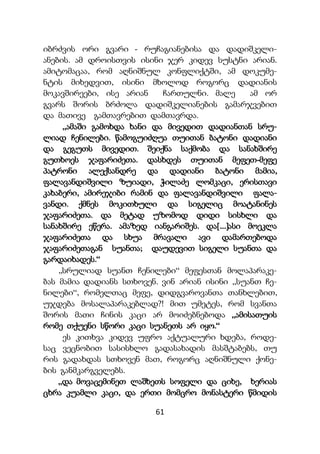 იბრძვის ორი გვარი - რუჩაგიანებისა და დადიშკელი-
ანების. ამ დროისთვის ისინი ჯერ კიდევ სუსტნი არიან.
ამიტომაცაა, რომ აღნიშნულ კონფლიქტში, ამ დოკუმე-
ნტის მიხედვით, ისინი მხოლოდ როგორც დადიანის
მოკავშირეები, ისე არიან ჩართულნი. მალე ამ ორ
გვარს შორის ბრძოლა დადიშკელიანების გამარჯვებით
და მათივე გამთავრებით დამთავრდა.
„ამაში გამოხდა ხანი და მივედით დადიანთან სრუ-
ლიად ჩენილები. წამოგვიძღუა თუითან ბატონი დადიანი
და გეგუთს მივედით. შეიქნა საქმობა და სანახშირე
გუთხოეს ჯაფარიძეთა. დასხდეს თუითან მეფეთ-მეფე
პატრონი ალექსანდრე და დადიანი ბატონი მამია,
ფალავანდიშვილი ზუიადი, ჭილაძე ლომკაცი, ერისთავი
კახაბერი, ამირეჯიბი რამინ და ფალავანდიშვილი ფალა-
ვანდი. ქმნეს მოკითხული და სიგელიც მოატანინეს
ჯაფარიძეთა. და მეტად უზომოდ დიდი სისხლი და
სანახშირე ეწერა. ამაზედ იანგარიშეს. და[...]სი მოეკლა
ჯაფარიძეთა და სხუა მრავალი ავი დამართებოდა
ჯაფარიძეთაგან სუანთა; დაუდევით სიგელი სუანთა და
გარდაიხადეს.“
„სრულიად სუანთ ჩენილები“ მეფესთან მოლაპარაკე-
ბას მამია დადიანს სთხოვენ. ვინ არიან ისინი „სუანთ ჩე-
ნილები“, რომელთაც მეფე, დიდგვაროვანთა თანხლებით,
უჯდება მოსალაპარაკებლად?! მით უმეტეს, რომ სვანთა
შორის მათი ჩინის კაცი არ მოიძებნებოდა „ამისათუის
რომე თქუენი სწორი კაცი სუანეთს არ იყო.“
ეს კითხვა კიდევ უფრო აქტუალური ხდება, როდე-
საც ვეცნობით სასისხლო გადასახადის მასშტაბებს, თუ
რის გადახდას სთხოვენ მათ, როგორც აღნიშნული ქონე-
ბის განმკარგველებს.
„და მოვაცემინეთ ლაშხეთს სოფელი და ციხე, ხერიას
ცხრა კუამლი კაცი, და ერთი მომცრო მონასტერი წმიდის
61